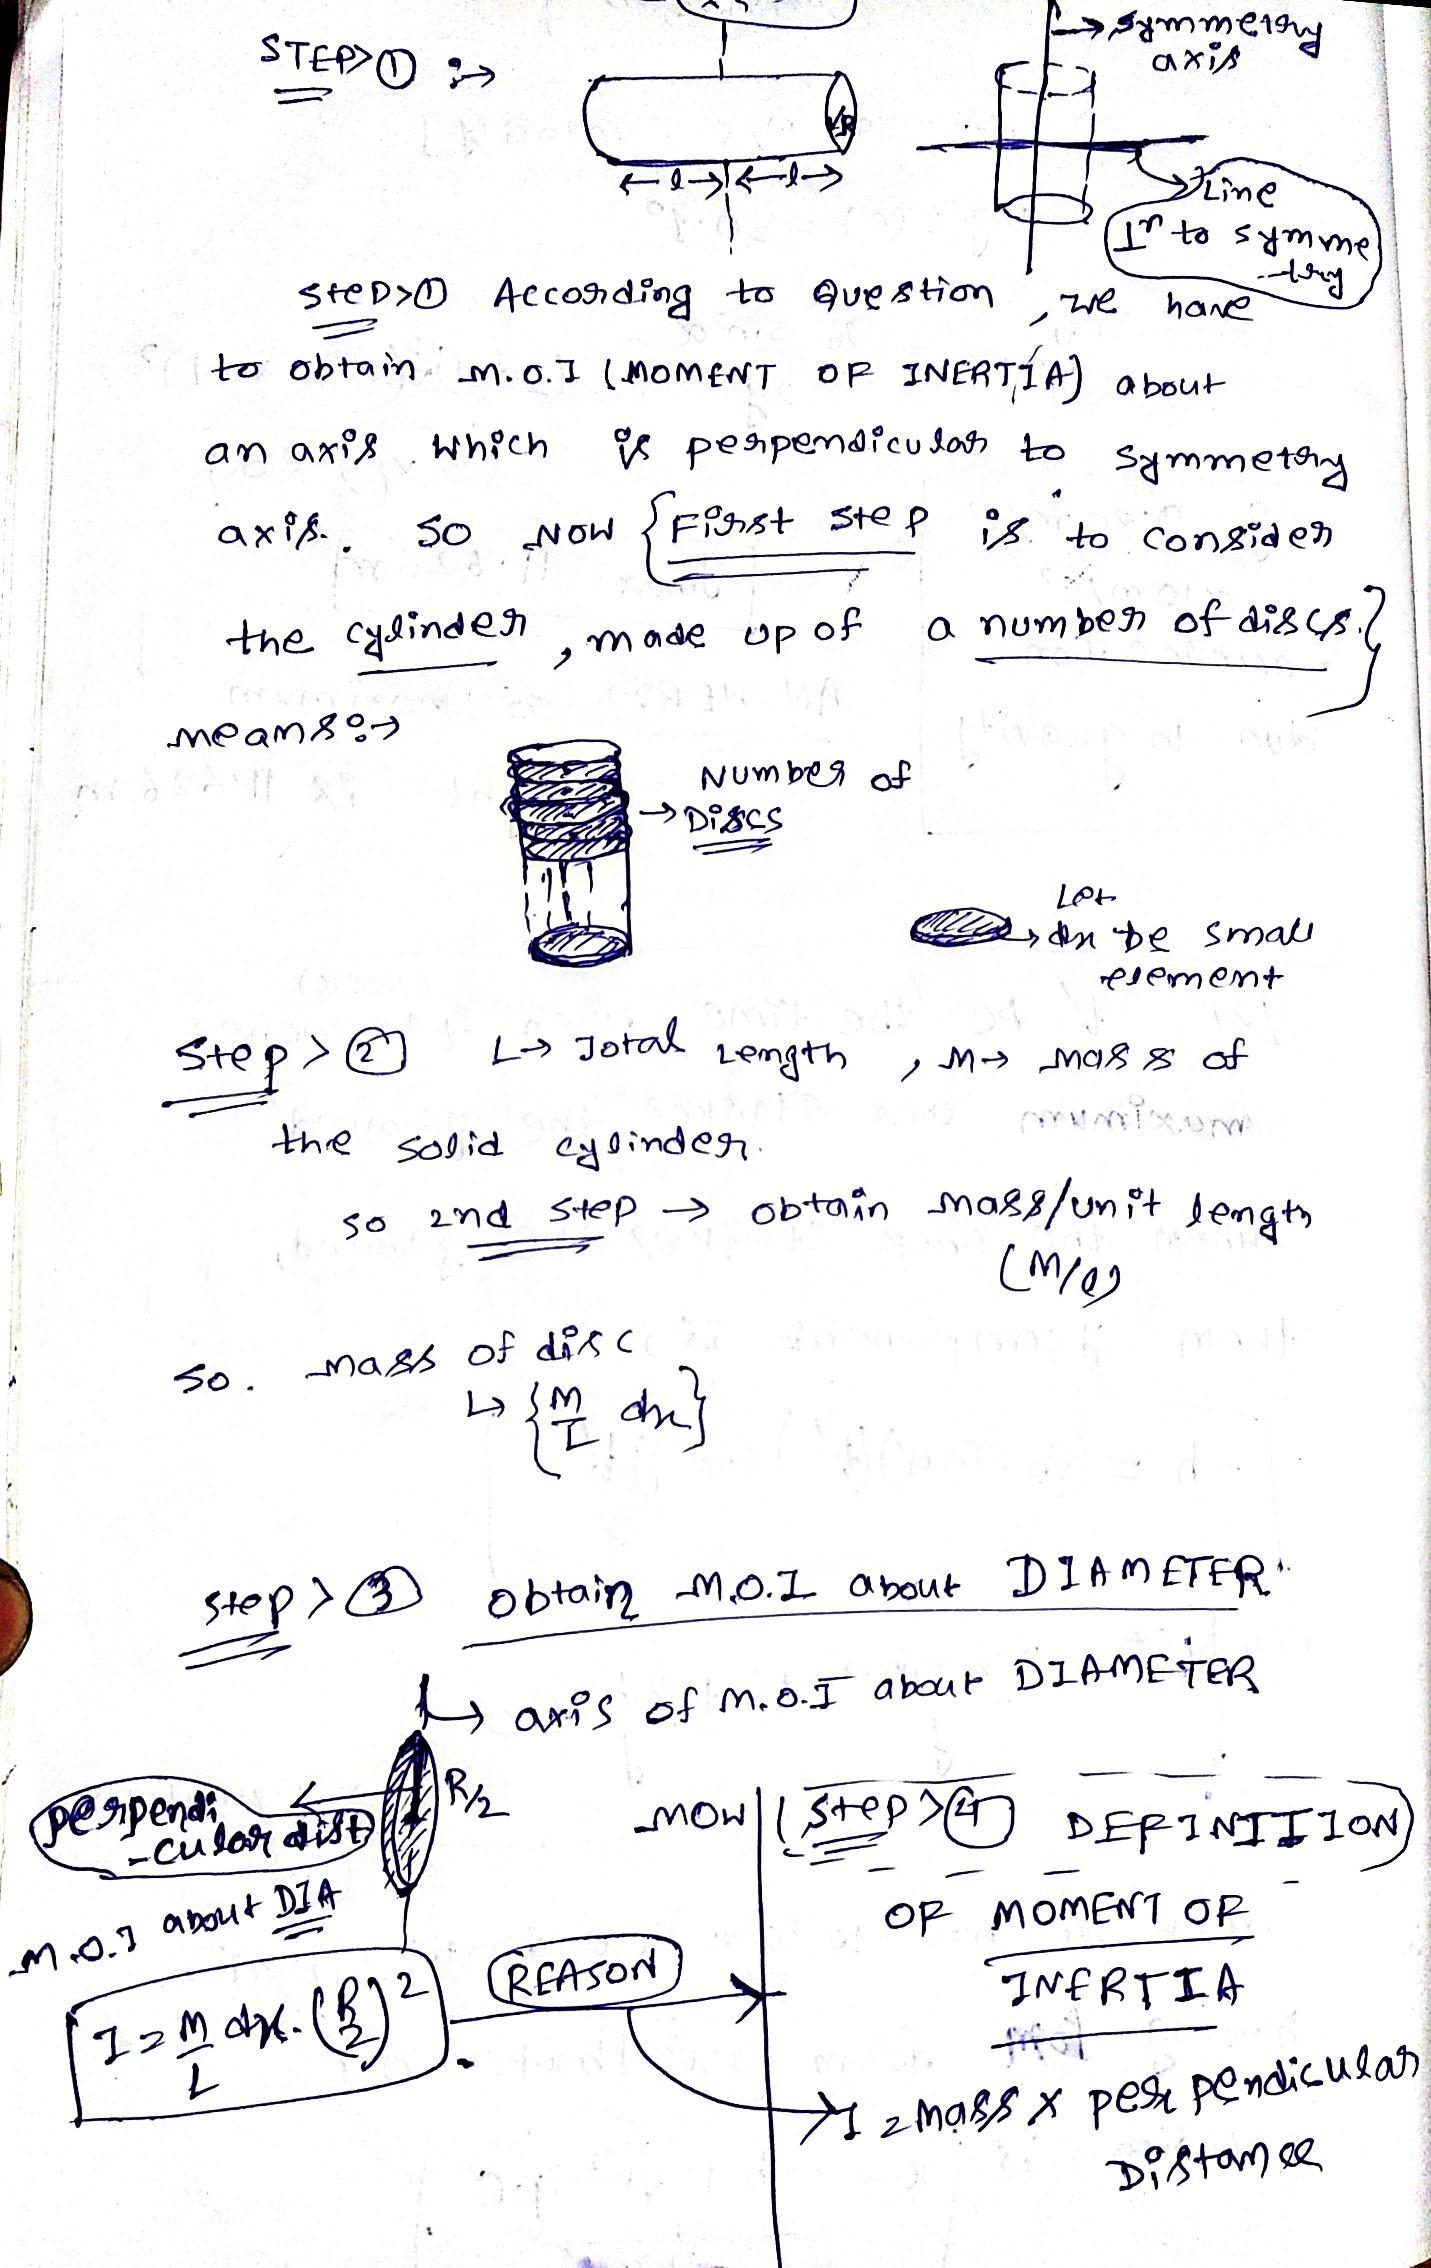 STEP>① :→
symmetry
axis
R
←l→|←l→
Line
⊥r to symme
-try
Step>① According to Question, we have
to obtain M.O.I (MOMENT OF INERTIA) about
an axis which is perpendicular to symmetry
axis. SO NOW {First step is to consider
the cylinder, made up of a number of discs.}
means:→
Number of
→ Discs
Let
dx be small
element
Step>② L→ Total Length, M→ Mass of
the solid cylinder.
so 2nd step → obtain mass/unit length
(M/l)
so. mass of disc
↳ {M/L dx}
Step>③ obtain M.O.I about DIAMETER.
↳ axis of M.O.I about DIAMETER
R/2
perpendi
-cular dist
M.O.I about DIA
I = M/L dx.(R/2)²
REASON
NOW (Step>④ DEFINITION)
OF MOMENT OF
INERTIA
I = Mass x perpendicular
Distance